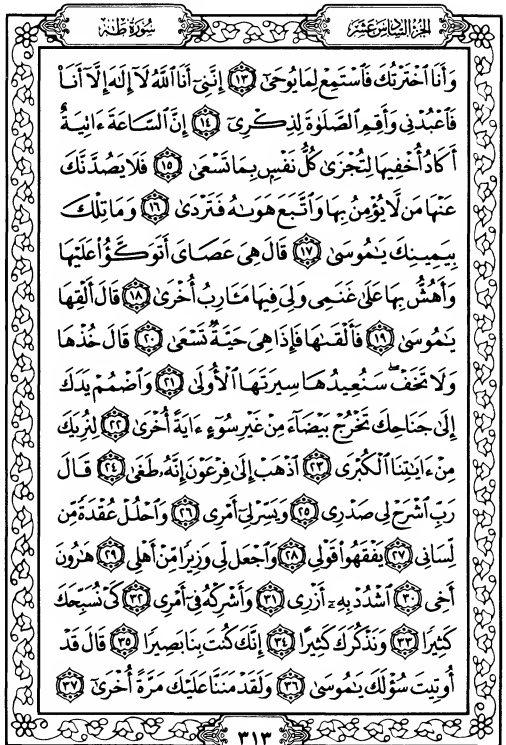 سُورَةُ طه الجُزْءُ السَّادِسَ عَشَرَ
وَأَنَا ٱخْتَرْتُكَ فَٱسْتَمِعْ لِمَا يُوحَىٰٓ ١٣ إِنَّنِىٓ أَنَا ٱللَّهُ لَآ إِلَٰهَ إِلَّآ أَنَا۠
فَٱعْبُدْنِى وَأَقِمِ ٱلصَّلَوٰةَ لِذِكْرِىٓ ١٤ إِنَّ ٱلسَّاعَةَ ءَاتِيَةٌ
أَكَادُ أُخْفِيهَا لِتُجْزَىٰ كُلُّ نَفْسٍۭ بِمَا تَسْعَىٰ ١٥ فَلَا يَصُدَّنَّكَ
عَنْهَا مَن لَّا يُؤْمِنُ بِهَا وَٱتَّبَعَ هَوَىٰهُ فَتَرْدَىٰ ١٦ وَمَا تِلْكَ
بِيَمِينِكَ يَٰمُوسَىٰ ١٧ قَالَ هِىَ عَصَاىَ أَتَوَكَّؤُا۟ عَلَيْهَا
وَأَهُشُّ بِهَا عَلَىٰ غَنَمِى وَلِىَ فِيهَا مَـَٔارِبُ أُخْرَىٰ ١٨ قَالَ أَلْقِهَا
يَٰمُوسَىٰ ١٩ فَأَلْقَىٰهَا فَإِذَا هِىَ حَيَّةٌ تَسْعَىٰ ٢٠ قَالَ خُذْهَا
وَلَا تَخَفْ ۖ سَنُعِيدُهَا سِيرَتَهَا ٱلْأُولَىٰ ٢١ وَٱضْمُمْ يَدَكَ
إِلَىٰ جَنَاحِكَ تَخْرُجْ بَيْضَآءَ مِنْ غَيْرِ سُوٓءٍ ءَايَةً أُخْرَىٰ ٢٢ لِنُرِيَكَ
مِنْ ءَايَٰتِنَا ٱلْكُبْرَى ٢٣ ٱذْهَبْ إِلَىٰ فِرْعَوْنَ إِنَّهُۥ طَغَىٰ ٢٤ قَالَ
رَبِّ ٱشْرَحْ لِى صَدْرِى ٢٥ وَيَسِّرْ لِىٓ أَمْرِى ٢٦ وَٱحْلُلْ عُقْدَةً مِّن
لِّسَانِى ٢٧ يَفْقَهُوا۟ قَوْلِى ٢٨ وَٱجْعَل لِّى وَزِيرًا مِّنْ أَهْلِى ٢٩ هَٰرُونَ
أَخِى ٣٠ ٱشْدُدْ بِهِۦٓ أَزْرِى ٣١ وَأَشْرِكْهُ فِىٓ أَمْرِى ٣٢ كَىْ نُسَبِّحَكَ
كَثِيرًا ٣٣ وَنَذْكُرَكَ كَثِيرًا ٣٤ إِنَّكَ كُنتَ بِنَا بَصِيرًا ٣٥ قَالَ قَدْ
أُوتِيتَ سُؤْلَكَ يَٰمُوسَىٰ ٣٦ وَلَقَدْ مَنَنَّا عَلَيْكَ مَرَّةً أُخْرَىٰٓ ٣٧
٣١٣